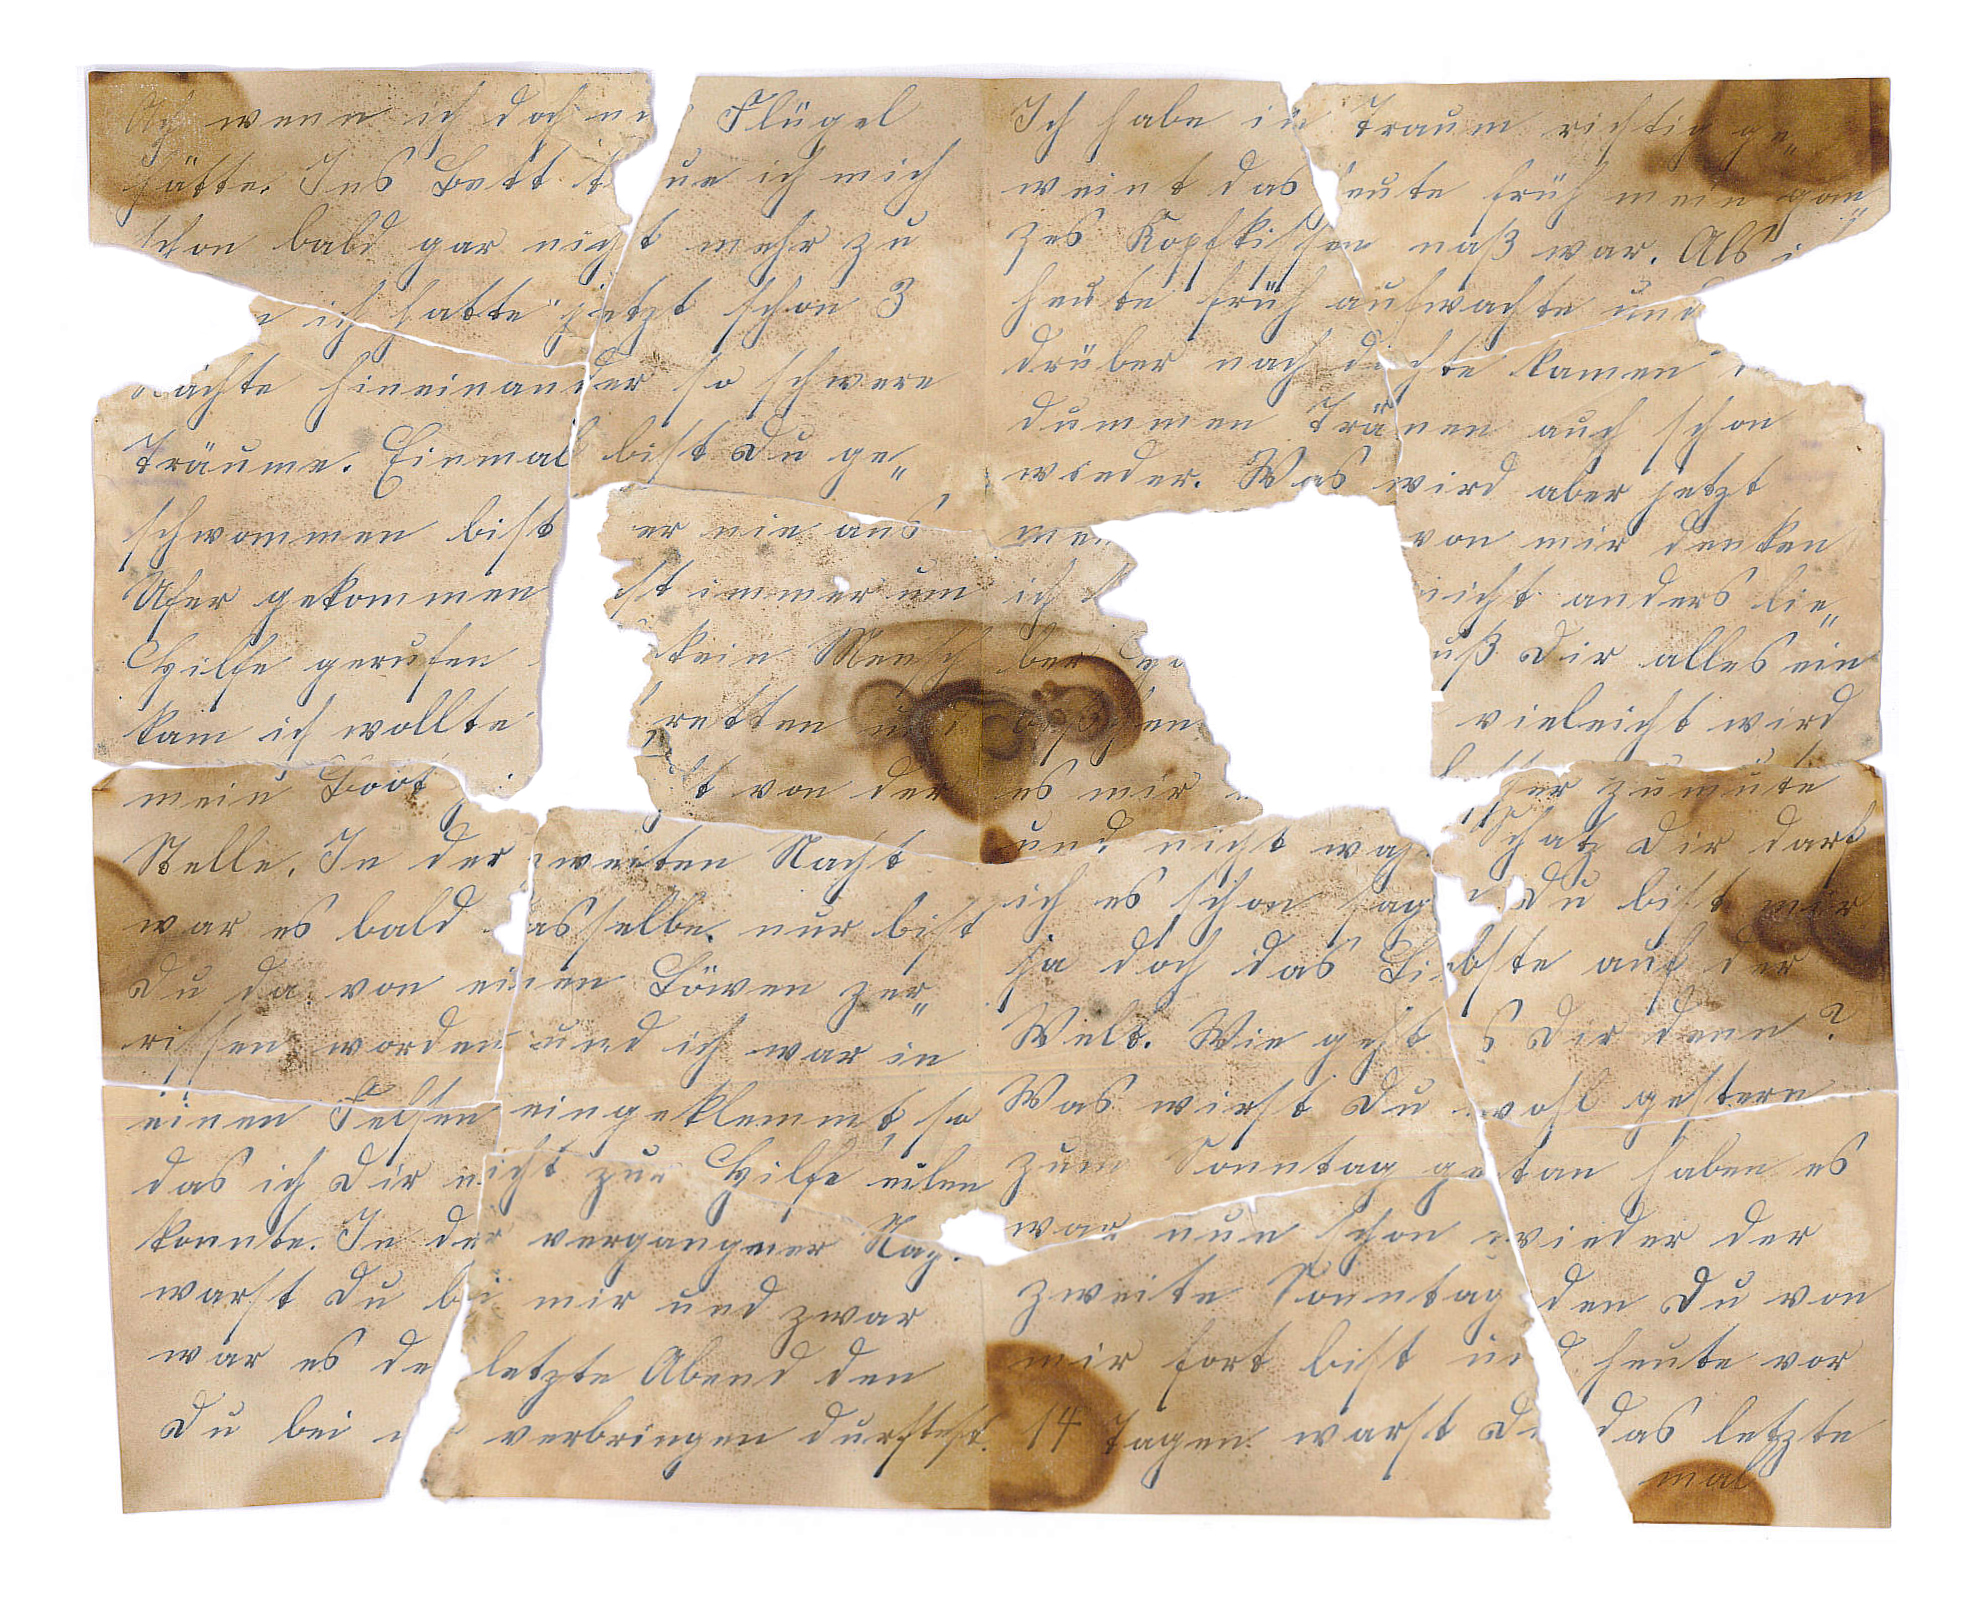 Ach wenn ich doch nur Flügel
hätte. Ins Bett traue ich mich
schon bald gar nicht mehr zu
ich hatte jetzt schon 3
Nächte hineinander so schwere
Träume. Einmal bist Du ge„
schwommen bist er nie ans
Ufer gekommen immer um
Hilfe gerufen kein Mensch
kam ich wollte retten
mein Boot von der
Stelle. In der zweiten Nacht
war es bald dasselbe nur bist
Du da von einen Löwen zer„
rissen worden und ich war in
einen Felsen eingeklemmt, so
das ich Dir nicht zur Hilfe eilen
konnte. In der vergangner Nac.
warst Du bei mir und zwar
war es de letzte Abend den
Du bei verbringen durftest.
Ich habe in Traum richtig ge„
weint das heute früh mein gan„
zes Kopfkissen naß war. Als
heute früh aufwachte und
drüber nach dachte kamen
dummen Tränen auch schon
wieder. Was wird aber jetzt
von mir denken
ich nicht anders lie„
ber Dir alles ein
vieleicht wird
es mir zumute
und nicht Schatz Dir darf
ich es schon sagen Du bist mir
ja doch das Liebste auf der
Welt. Wie geht s Dir denn?
Was wirst Du wohl gestern
zum Sonntag getan haben es
war nun schon wieder der
zweite Sonntag den Du von
mir fort bist und heute vor
14 Tagen warst Du das letzte
mal